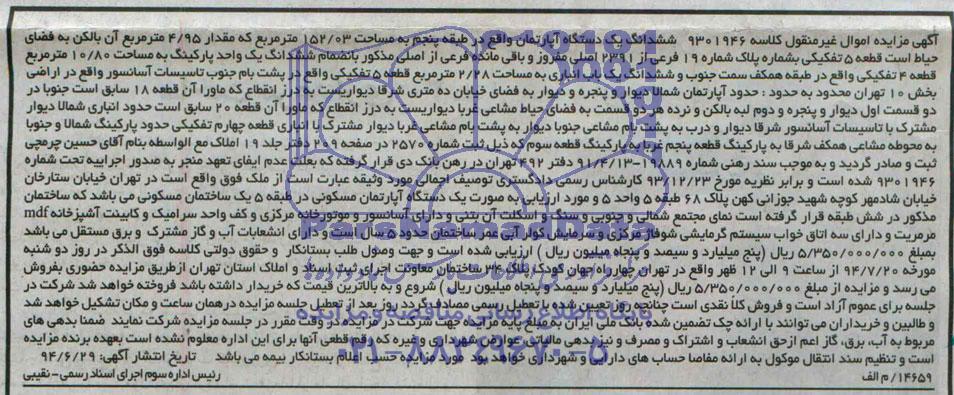 آگهی مزایده اموال غیرمنقول کلاسه ۹۳۰۱۹۴۶ ششدانگ یک دستگاه آپارتمان واقع در طبقه پنجم به مساحت ۱۵۲/۰۳ مترمربع که مقدار ۴/۹۵ مترمربع آن بالکن به فضای
حیاط است قطعه ۵ تفکیکی بشماره پلاک شماره ۱۹ فرعی از ۲۳۹۱ اصلی مفروز و باقی مانده فرعی از اصلی مذکور بانضمام ششدانگ یک واحد پارکینگ به مساحت ۱۰/۸۰ مترمربع
قطعه ۴ تفکیکی واقع در طبقه همکف سمت جنوب و ششدانگ یک باب انباری به مساحت ۲/۲۸ مترمربع قطعه ۵ تفکیکی واقع در پشت بام جنوب تاسیسات آسانسور واقع در اراضی
بخش ۱۰ تهران محدود به حدود : حدود آپارتمان شمالا دیوار و پنجره و دیوار به فضای خیابان ده متری شرقا دیواریست به درز انقطاع که ماورا آن قطعه ۱۸ سابق است جنوبا در
دو قسمت اول دیوار و پنجره و دوم لبه بالکن و نرده هر دو قسمت به فضای حیاط مشاعی غربا دیواریست به درز انقطاع که ماورا آن قطعه ۲۰ سابق است حدود انباری شمالا دیوار
مشترک با تاسیسات آسانسور شرقا دیوار و درب به پشت بام مشاعی جنوبا دیوار به پشت بام مشاعی غربا دیوار مشترک با انباری قطعه چهارم تفکیکی حدود پارکینگ شمالا و جنوبا
به محوطه مشاعی همکف شرقا به پارکینگ قطعه پنجم غربا به پارکینگ قطعه سوم که ذیل ثبت شماره ۲۵۷۰ در صفحه دفتر جلد ۱۹ املاک مع الواسطه بنام آقای حسین چرمچی
ثبت و صادر گردید و به موجب سند رهنی شماره ۱۹۸۸۹-۹۱/۴/۱۳ دفتر ۴۹۲ تهران در رهن بانک دی قرار گرفته که بعلت عدم ایفای تعهد منجر به صدور اجراییه تحت شماره
۹۳۰۱۹۴۶ شده است و برابر نظریه مورخ ۹۳/۱۲/۲۳ کارشناس رسمی دادگستری توصیف اجمالی مورد وثیقه عبارت است از ملک فوق واقع است در تهران خیابان ستارخان
خیابان شادمهر کوچه شهید جوزانی کهن پلاک ۶۸ طبقه ۵ واحد ۵ و مورد ارزیابی به صورت یک دستگاه آپارتمان مسکونی در طبقه ۵ یک ساختمان مسکونی می باشد که ساختمان
مذکور در شش طبقه قرار گرفته است نمای مجتمع شمالی و جنوبی و سنگ و اسکلت آن بتنی و دارای آسانسور و موتورخانه مرکزی و کف واحد سرامیک و کابینت آشپزخانه mdf
مرمریت و دارای سه اتاق خواب سیستم گرمایشی شوفاژ مرکزی و سرمایش کولر آبی عمر ساختمان حدود ۵ سال است و دارای انشعابات آب و گاز مشترک و برق مستقل می باشد
بمبلغ ۵/۳۵۰/۰۰۰/۰۰۰ ریال (پنج میلیارد و سیصد و پنجاه میلیون ریال ) ارزیابی شده است و جهت وصول طلب بستانکار و حقوق دولتی کلاسه فوق الذکر در روز دو شنبه
مورخه ۹۴/۷/۲۰ از ساعت ۹ الی ۱۲ ظهر واقع در تهران چهارراه جهان کودک پلاک ۳۴ ساختمان معاونت اجرای ثبت اسناد و املاک استان تهران ازطریق مزایده حضوری بفروش
می رسد و مزایده از مبلغ ۵/۳۵۰/۰۰۰/۰۰۰ ریال (پنج میلیارد و سیصد و پنجاه میلیون ریال ) شروع و به بالاترین قیمت که خریدار داشته باشد فروخته خواهد شد شرکت در
جلسه برای عموم آزاد است و فروش کلا نقدی است چنانچه روز تعیین شده با تعطیل رسمی مصادف گردد روز بعد از تعطیل جلسه مزایده درهمان ساعت و مکان تشکیل خواهد شد
و طالبین و خریداران می توانند با ارائه چک تضمین شده بانک ملی ایران به مبلغ پایه مزایده جهت شرکت در مزایده در وقت مقرر در جلسه مزایده شرکت نمایند ضمنا بدهی های
مربوط به آب، برق، گاز اعم ازحق انشعاب و اشتراک و مصرف و نیز بدهی مالیاتی عوارض شهرداری و غیره که رقم قطعی آنها برای این اداره معلوم نشده است بعهده برنده مزایده
است و تنظیم سند انتقال موکول به ارائه مفاصا حساب های دارایی و شهرداری خواهد بود مورد مزایده حسب اعلام بستانکار بیمه می باشد تاریخ انتشار آگهی: ۹۴/۶/۲۹
۱۴۶۵۹/م الف رئیس اداره سوم اجرای اسناد رسمی - نقیبی
پایگاه اطلاع رسانی مناقصه و مزایده
۰۲۱-۸۸۳۴۹۶۷۰-۵